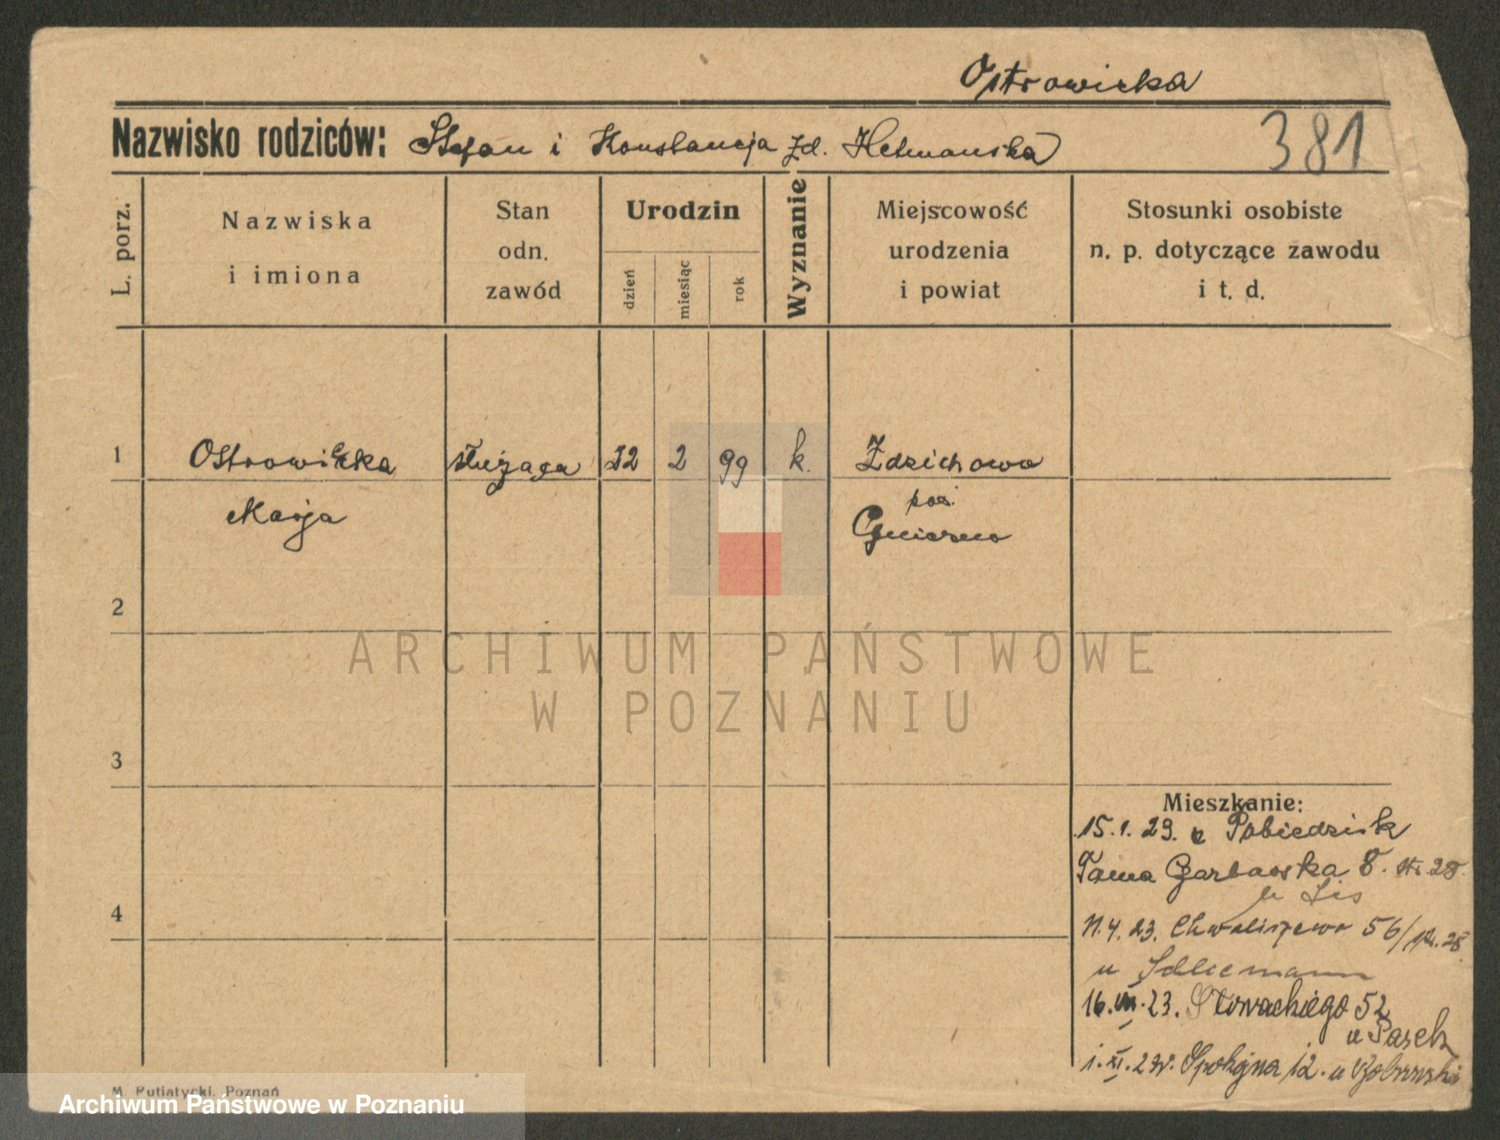 Ostrowicka
Nazwisko rodziców: Stefan i Konstancja zd. Hetmańska
381
L. porz.
Nazwiska
i imiona
Stan
odn.
zawód
Urodzin
dzień
miesiąc
rok
Wyznanie
Miejscowość
urodzenia
i powiat
Stosunki osobiste
n. p. dotyczące zawodu
i t. d.
1
Ostrowicka
służąca
22
2
99
k.
Zdzichowo
Marja
pow.
Gniezno
2
ARCHIWUM PAŃSTWOWE
W POZNANIU
3
Mieszkanie:
15.1.23. z Pobiedzisk
Garbarska 8.
u Lis
4
11.4.23. Chwaliszewo 56/
u
16.VII.23. Słowackiego 52
u
1.XI.23. Spokojna 12. u
M. Putiatycki, Poznań
Archiwum Państwowe w Poznaniu